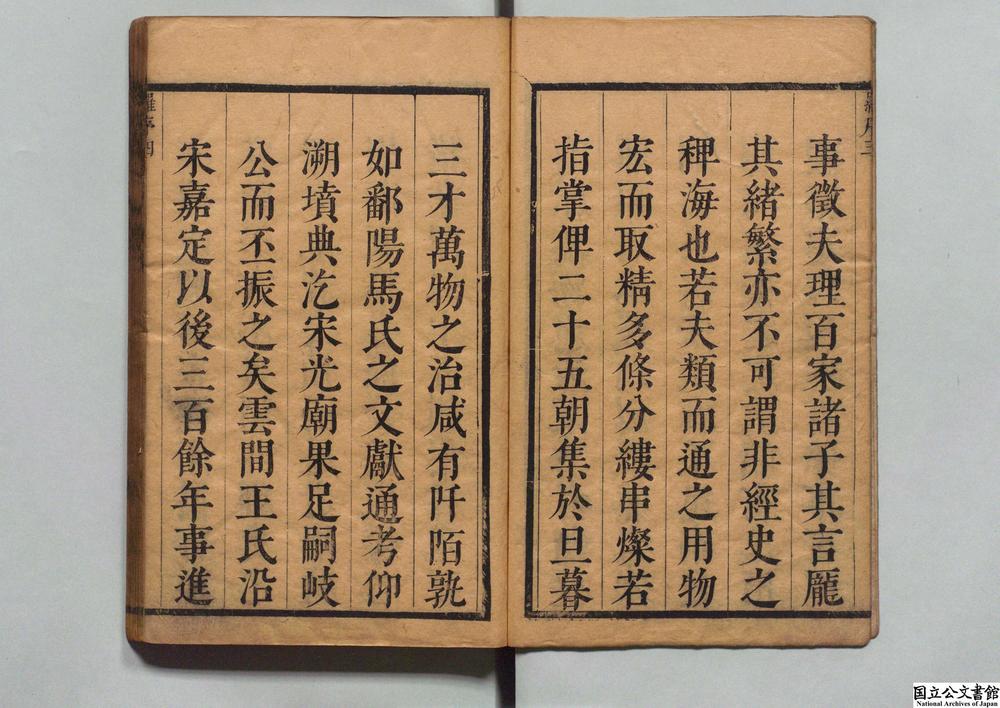 事徵夫理百家諸子其言龐
其緒繁亦不可謂非經史之
稗海也若夫類而通之用物
宏而取精多條分縷串燦若
指掌俾二十五朝集於旦暮
三才萬物之治咸有阡陌孰
如鄱陽馬氏之文獻通考仰
溯墳典汔宋光廟果足嗣岐
公而丕振之矣雲間王氏沿
宋嘉定以後三百餘年事進
国立公文書館
National Archives of Japan